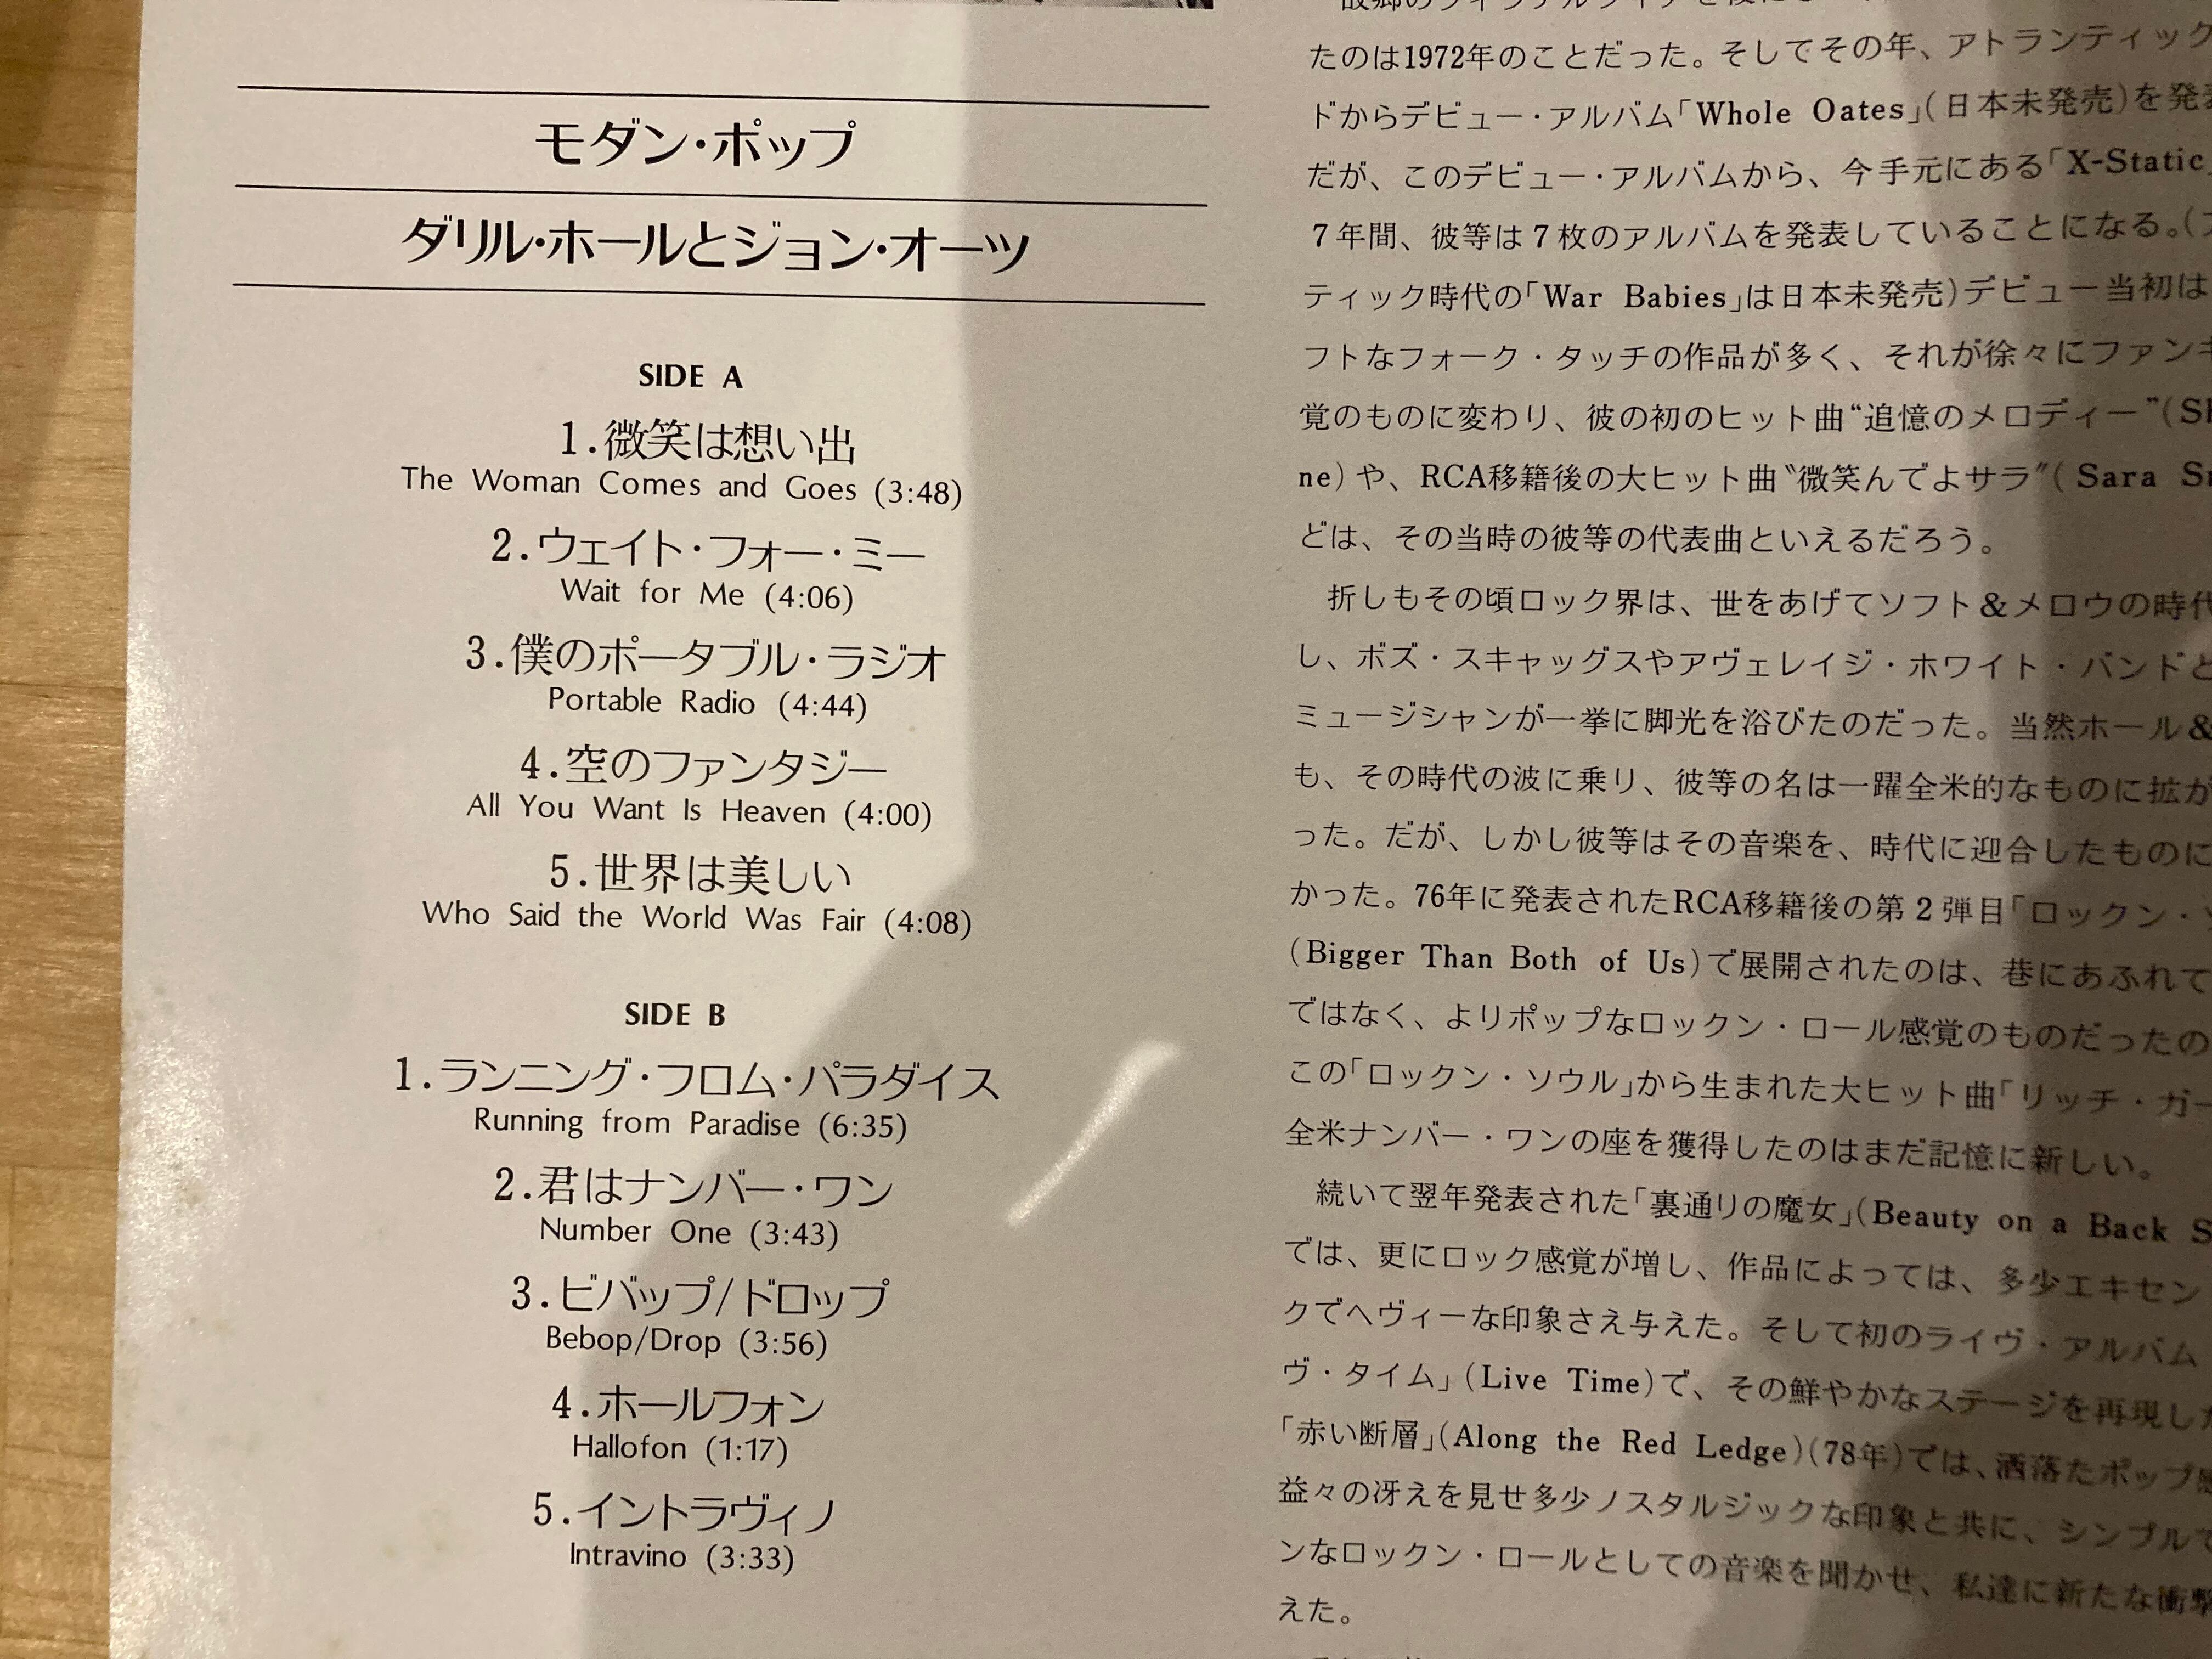 モダン・ポップ
ダリル・ホールとジョン・オーツ
SIDE A
1.微笑は想い出
The Woman Comes and Goes (3:48)
2.ウェイト・フォー・ミー
Wait for Me (4:06)
3.僕のポータブル・ラジオ
Portable Radio (4:44)
4.空のファンタジー
All You Want Is Heaven (4:00)
5.世界は美しい
Who Said the World Was Fair (4:08)
SIDE B
1.ランニング・フロム・パラダイス
Running from Paradise (6:35)
2.君はナンバー・ワン
Number One (3:43)
3.ビバップ/ドロップ
Bebop/Drop (3:56)
4.ホールフォン
Hallofon (1:17)
5.イントラヴィノ
Intravino (3:33)
たのは1972年のことだった。そしてその年、アトランティック
ドからデビュー・アルバム「Whole Oates」(日本未発売)を発
だが、このデビュー・アルバムから、今手元にある「X-Static」
7年間、彼等は7枚のアルバムを発表していることになる。(
ティック時代の「War Babies」は日本未発売)デビュー当初は
フトなフォーク・タッチの作品が多く、それが徐々にファンキ
覚のものに変わり、彼の初のヒット曲“追憶のメロディー”(S
ne)や、RCA移籍後の大ヒット曲〝微笑んでよサラ〞(Sara S
どは、その当時の彼等の代表曲といえるだろう。
折しもその頃ロック界は、世をあげてソフト&メロウの時代
し、ボズ・スキャッグスやアヴェレイジ・ホワイト・バンドと
ミュージシャンが一挙に脚光を浴びたのだった。当然ホール&
も、その時代の波に乗り、彼等の名は一躍全米的なものに拡が
った。だが、しかし彼等はその音楽を、時代に迎合したものに
かった。76年に発表されたRCA移籍後の第2弾目「ロックン・
(Bigger Than Both of Us)で展開されたのは、巷にあふれて
ではなく、よりポップなロックン・ロール感覚のものだったの
この「ロックン・ソウル」から生まれた大ヒット曲「リッチ・ガー
全米ナンバー・ワンの座を獲得したのはまだ記憶に新しい。
続いて翌年発表された「裏通りの魔女」(Beauty on a Back S
では、更にロック感覚が増し、作品によっては、多少エキセン
クでヘヴィーな印象さえ与えた。そして初のライヴ・アルバム
ヴ・タイム」(Live Time)で、その鮮やかなステージを再現した
「赤い断層」(Along the Red Ledge)(78年)では、洒落たポップ感
益々の冴えを見せ多少ノスタルジックな印象と共に、シンプルで
ンなロックン・ロールとしての音楽を聞かせ、私達に新たな衝撃
えた。